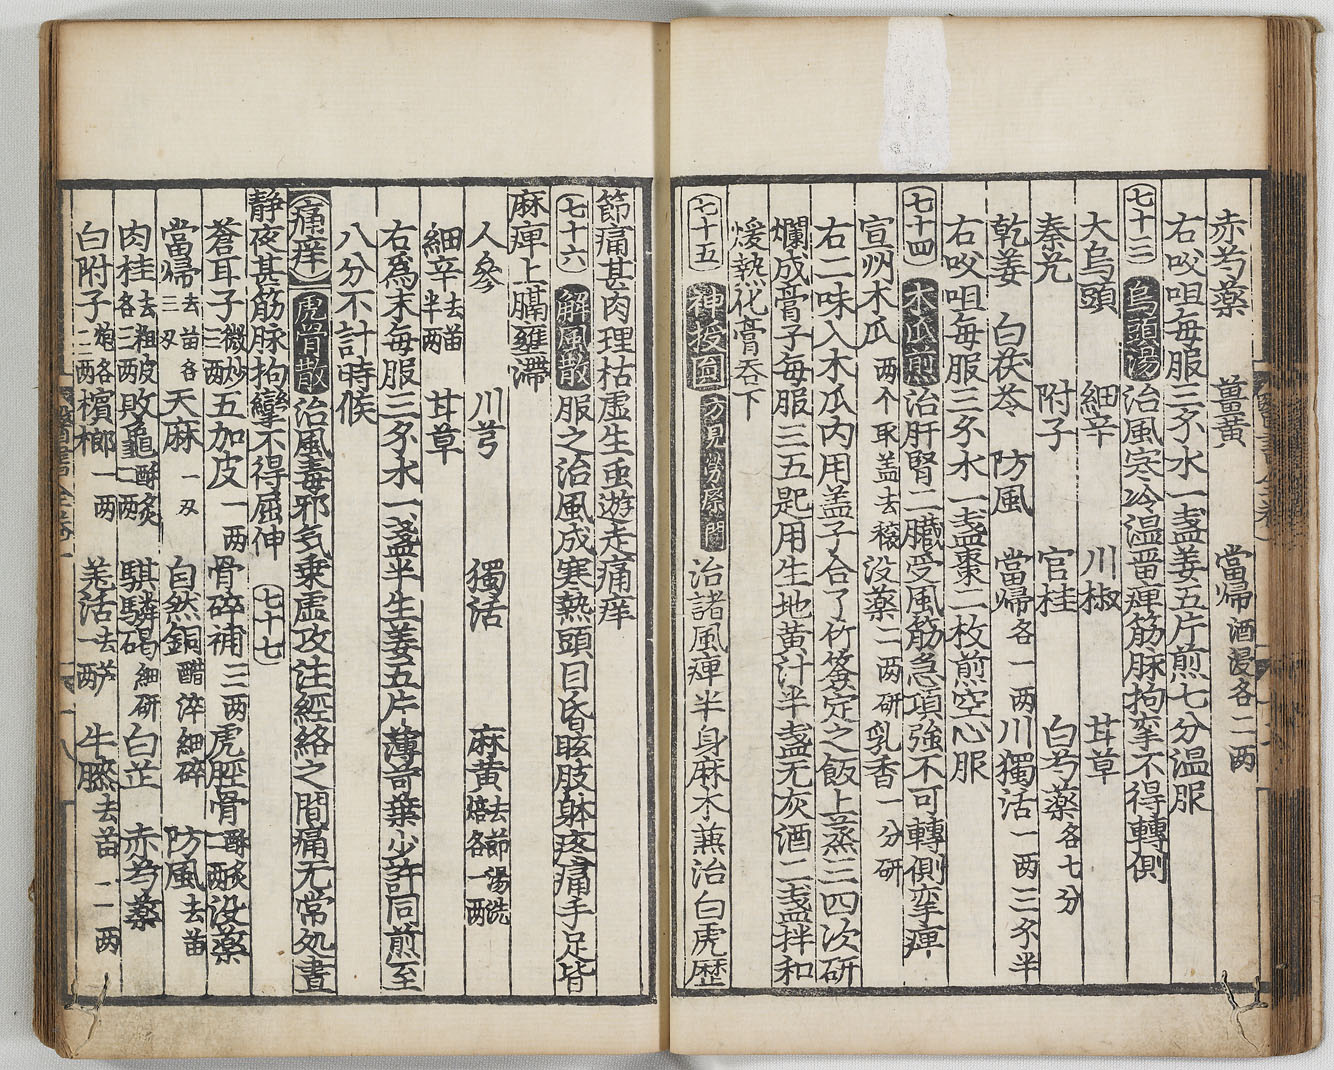 赤芍藥 薑黃 當歸酒浸各二两
右㕮咀每服三錢水一盞姜五片煎七分温服
七十三 烏頭湯 治風寒冷温畱痺筋脉拘挛不得轉側
大烏頭 細辛 川椒 甘草
秦艽 附子 官桂 白芍藥各七分
乾姜 白茯苓 防風 當歸各一两 川獨活一两三錢半
右㕮咀每服三錢水一盞棗二枚煎空心服
七十四 木瓜煎 治肝腎二臓受風筋急項強不可轉側挛痺
宣州木瓜两个取盖去穣 没薬二两研 乳香一分研
右二味入木瓜内用盖子合了竹簽定之飯上蒸三四次研
爛成膏子每服三五匙用生地黄汁半盞无灰酒二盞拌和
煖熱化膏吞下
七十五 神授圓 方見労瘵門 治諸風痺半身麻木兼治白虎歷
節痛甚肉理枯虚生虫遊走痛痒
七十六 解風散 服之治風成寒熱頭目昏眩肢躰疼痛手足皆
麻痺上膈壅滯
人參 川芎 獨活 麻黄去節湯洗焙各一两
細辛去苗半两 甘草
右爲末每服三錢水一盞半生姜五片薄苛葉少許同煎至
八分不計時候
痛痒 虎骨散 治風毒邪気乗虚攻注經絡之間痛无常処晝
静夜甚筋脉拘孿不得屈伸 七十七
蒼耳子微炒三两 五加皮一两 骨碎補三两 虎脛骨酥炙二两 没薬
當歸去苗各二刄 天麻一刄 自然銅醋淬細碎 防風去苗
肉桂去粗皮各三两 敗龜酥炙七两 騏驎碣細研 白芷 赤芍薬
白附子炮各二两 檳榔一两 羗活去芦一两 牛膝去苗二两